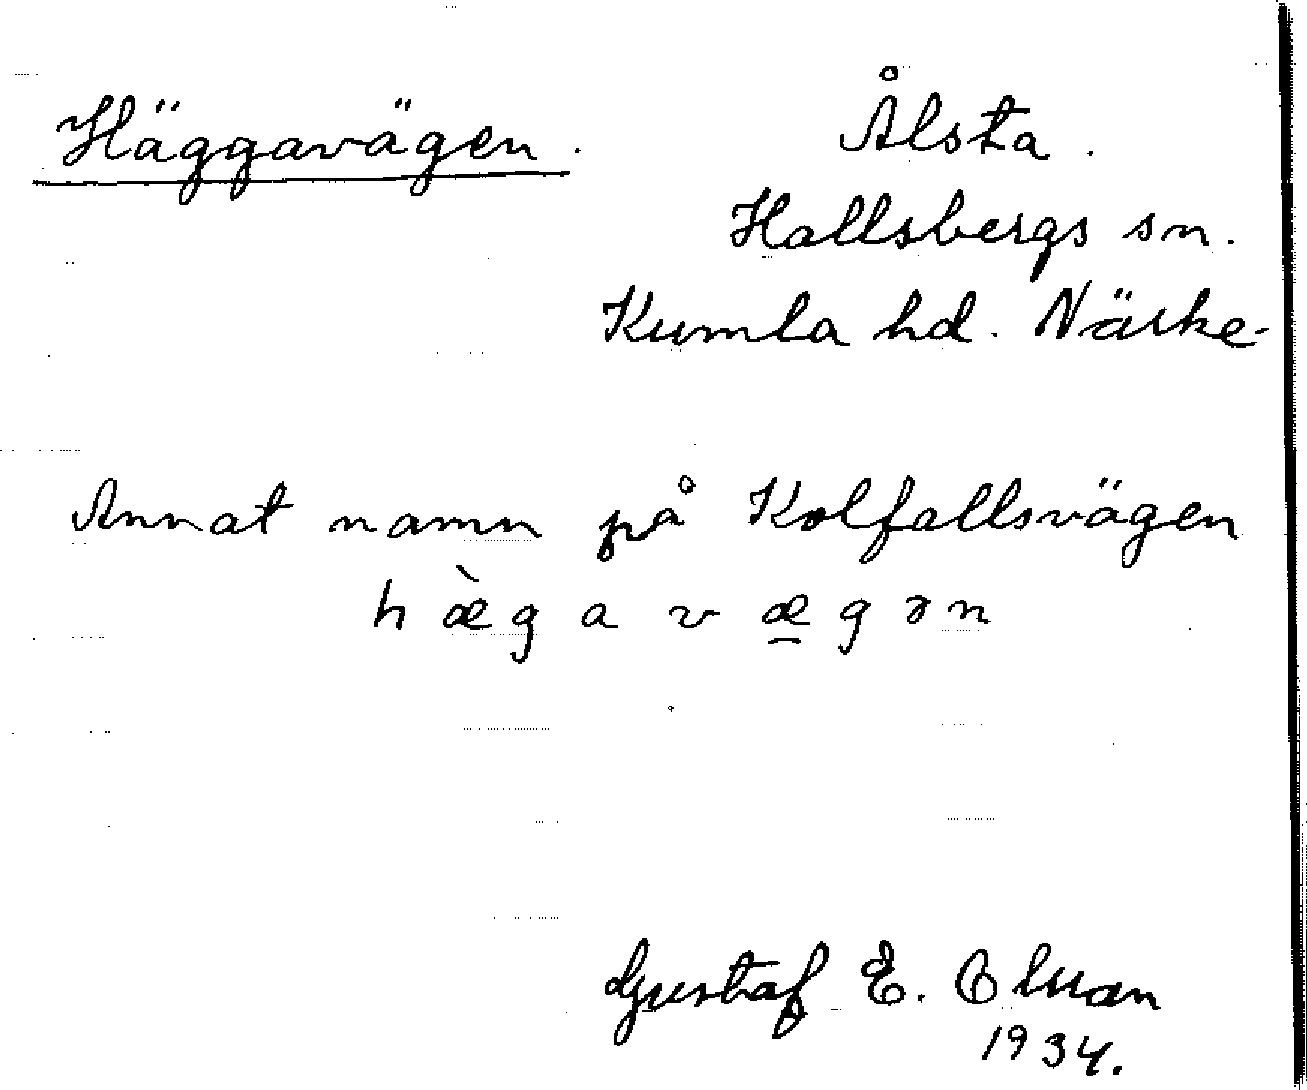 Häggavägen.
Ålsta.
Hallsbergs sn.
Kumla hd. Närke.
Annat namn på Kolfallsvägen
hæ̀gavæ̱gən
Gustaf E.
1934.